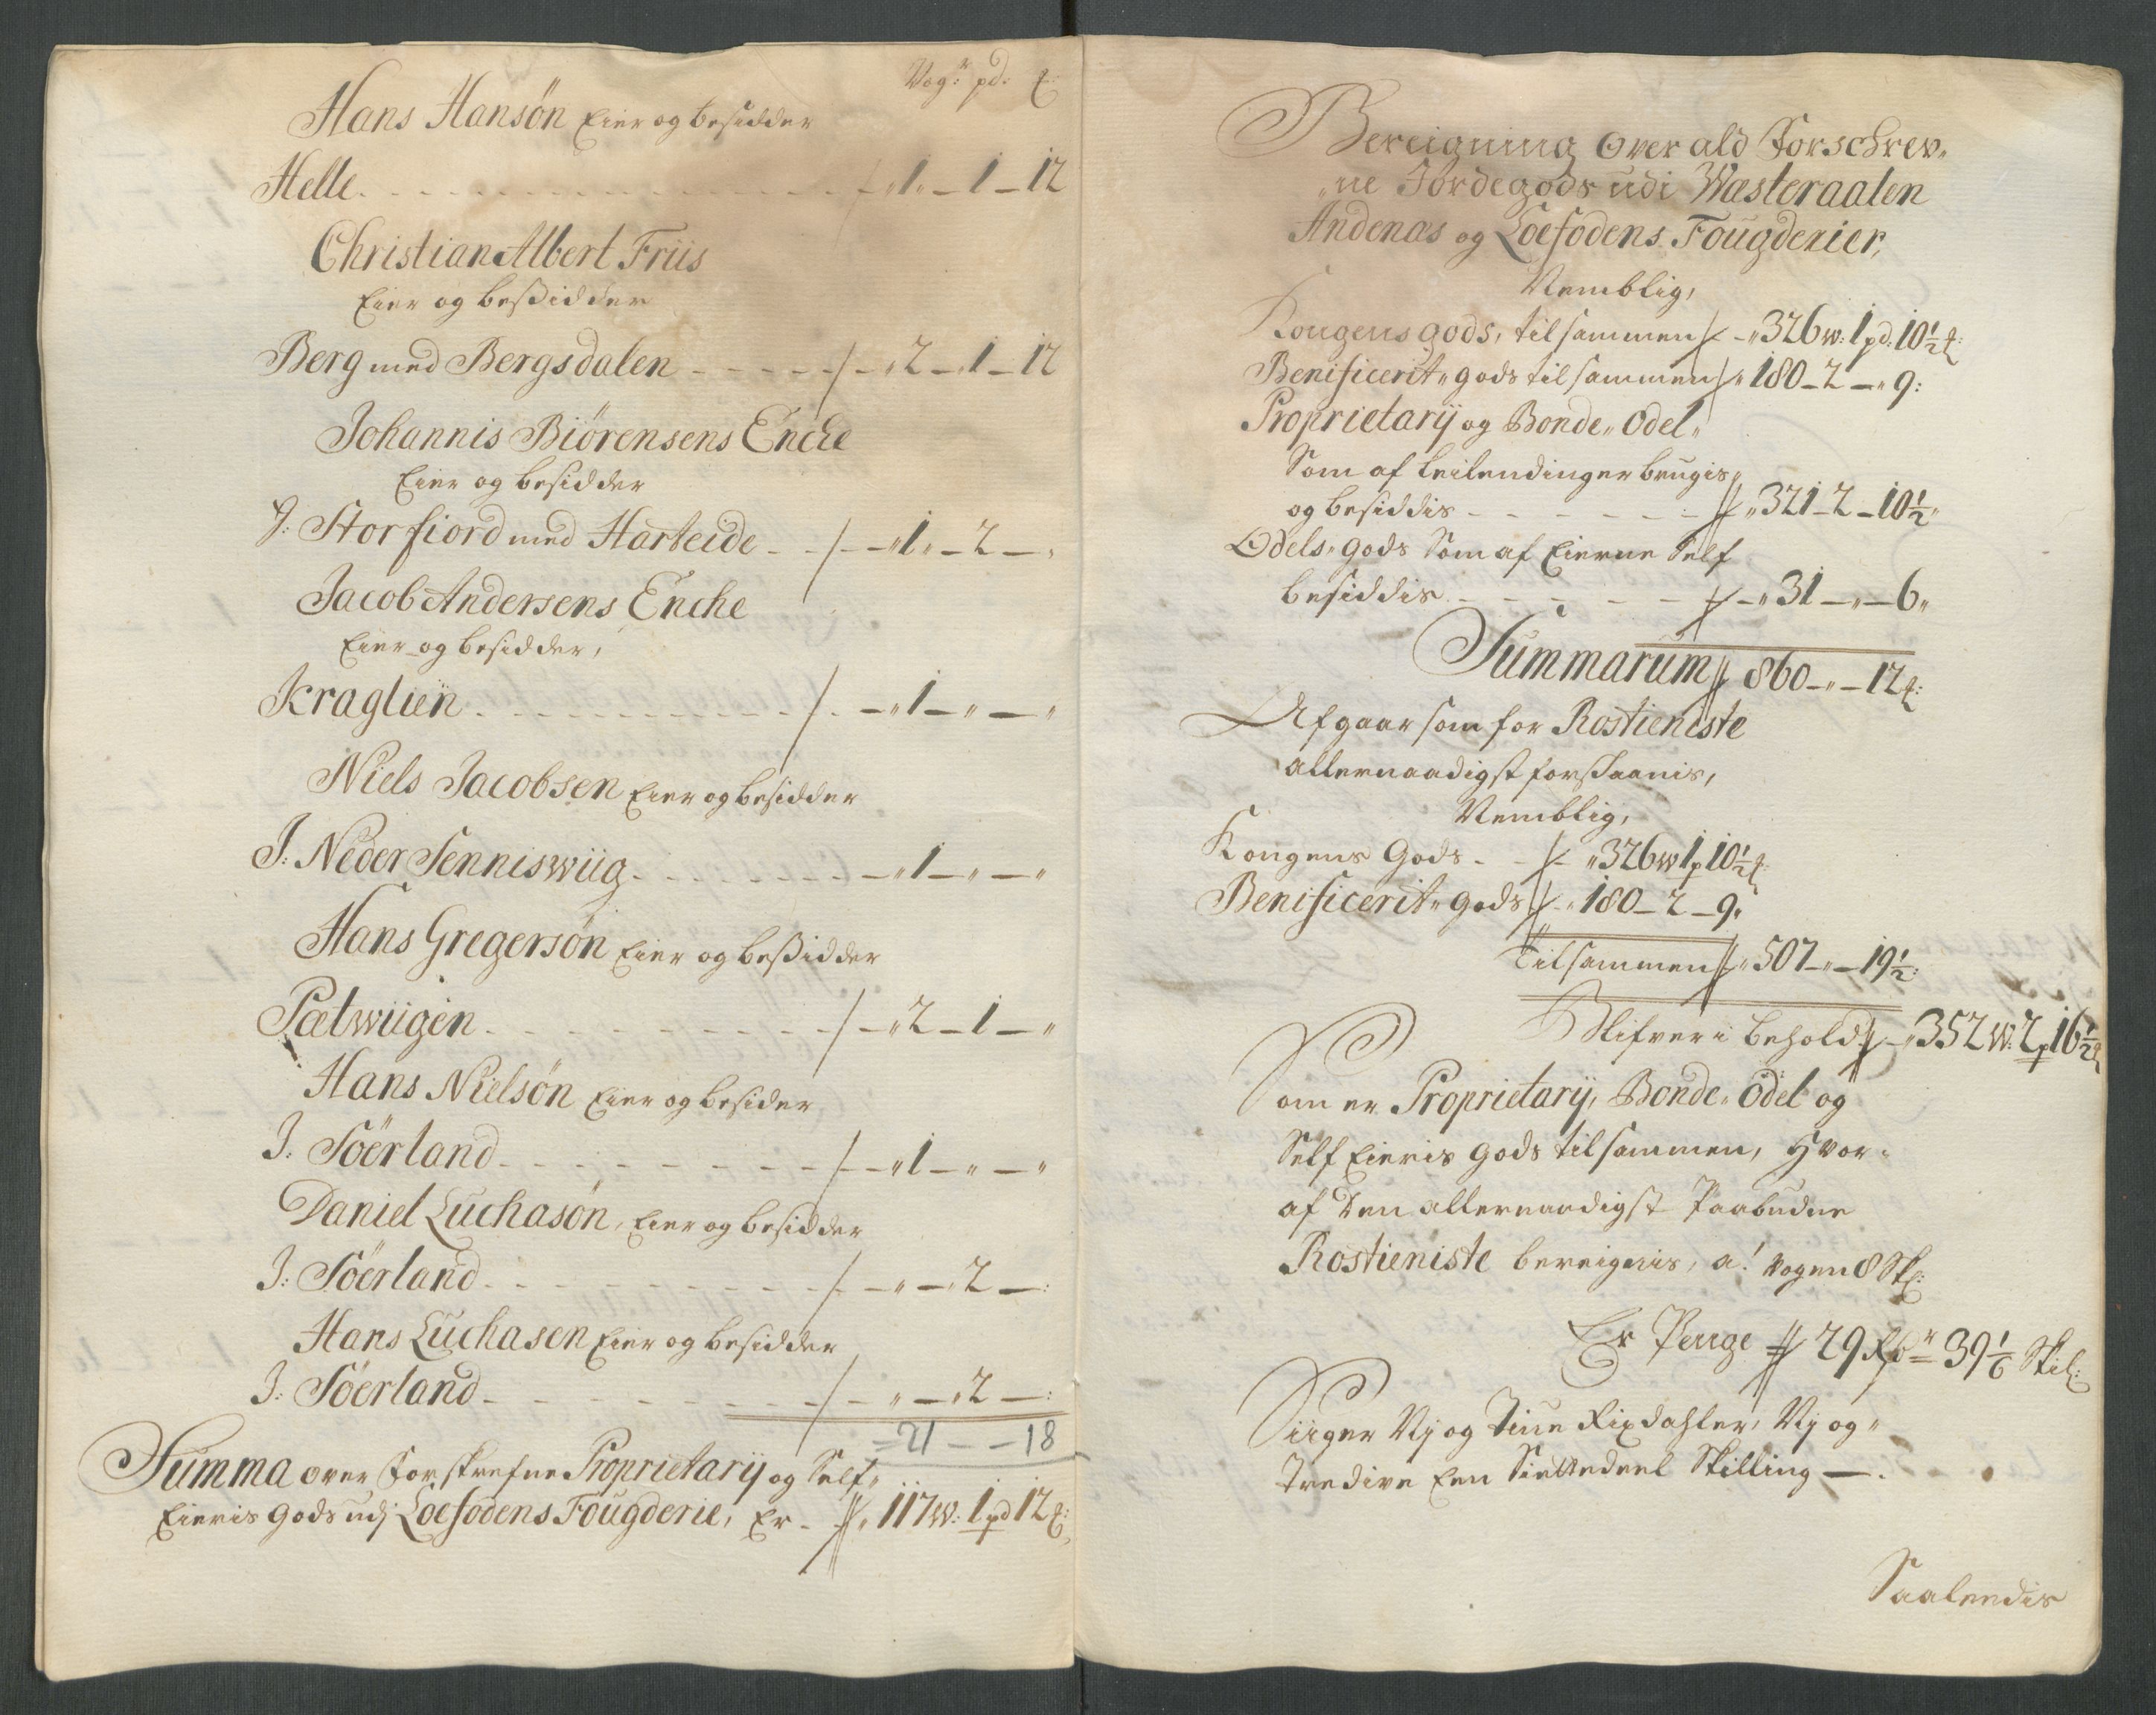 Vog:r pd: ℔:
Hans Hansön Eier og besidder
Helle - - - - - - - - - /- „1„ - 1 - 12
Christian Albert Friis
Eier og beßidder
Berg med Bergsdalen - - - - - /- „2 - 1 - 12
Johannis Biörensens Encke
Eier og besidder
J: Storfiord med Harteide - - /- - „1„ - 2 - „
Jacob Andersens Enche
Eier og besidder,
Kraglien - - - - - - - - - /- - „1 - „ - „
Niels Jacobsen Eier og besidder
J: Neder Senniswiig - - - - - - - - „1 - „ - „
Hans Gregersön Eier og beßidder
Pætwiigen - - - - - - - - - /- „2 - 1 - „
Hans Nielsön Eier og besider
J: Söerland - - - - - - - - /- - „1 - „ - „
Daniel Luchasön, Eier og besidder
J: Söerland - - - - - - - - /- - „ - 2 - :
Hans Luchasen Eier og besidder
J: Söerland - - - - - - - - /- - „ - 2 - :
21 - - 18
Summa over Forskrefne Proprietarij og Self„
Eieris Gods udj Loefodens Fougderie, Er - //„ 117w: 1pd 12℔:
Bereigning over ald Forschrev„
„ne Jordegods udi Wæsteraalen
Andenæs og Loefodens Fougderier,
Nemblig,
Kongens gods, tilsammen /- „326w: 1pd: 10½℔:
Benificerit„ gods tilsammen /„ 180 - 2 - „ 9:
Proprietarij og Bonde„ Odel„
Som af Leilendinger brugis„
og besiddis - - - - - - //- „321 - 2 - 10½„
Odels„ gods Som af Eierne Self
besiddis - - - - - - /- „31 - „ - 6„
Summarum // 860 - „ - 12℔:
Afgaar som for Rostieniste
allernaadigst forskaanis,
Nemblig,
Kongens Gods - - /- „326w 1p 10½℔:
Benificerit„ gods /- „180 - 2 - 9„
Tilsammen //„ 507 - „ - 19½:
Blifver i behold // - „352w: 2p 16½℔
Som er Proprietarij, Bonde„ Odel og
Self Eieris gods tilsammen, Hvor„
af Den allernaadigst Paabudne
Rostieniste bereignis, a! vogen 8 Sk:
Er Penge // 29 Rdr 39 1/6 Skil:
Siiger Nj og Tiue Rixdahler, Nj og„
Tredive Een Siettedeel Skilling - .
Saaledis